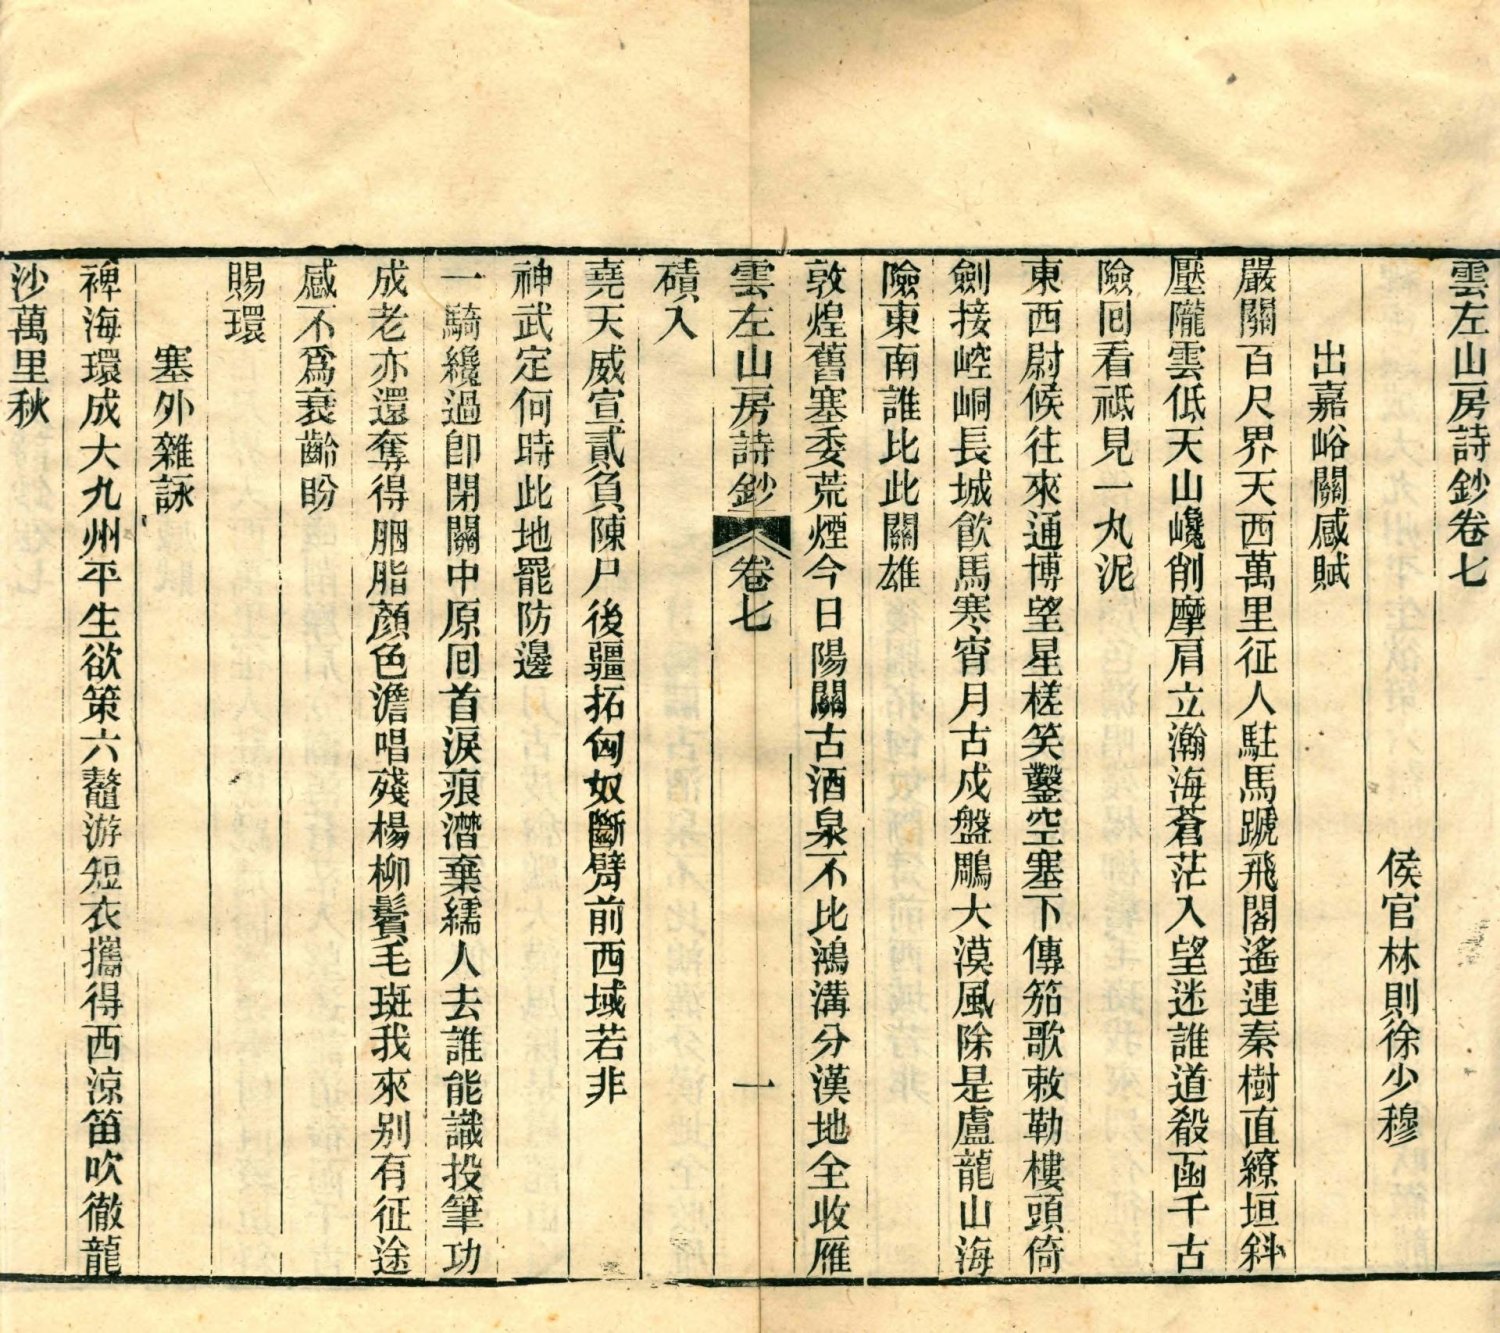 雲左山房詩鈔卷七
侯官林則徐少穆
出嘉峪關感賦
嚴關百尺界天西萬里征人駐馬蹏飛閣遙連秦樹直繚垣斜
壓隴雲低天山巉削摩肩立瀚海蒼茫入望迷誰道殽函千古
險回看祗見一丸泥
東西尉候往來通博望星槎笑鑿空塞下傳笳歌敕勒樓頭倚
劍接崆峒長城飲馬寒宵月古戍盤雕大漠風除是盧龍山海
險東南誰比此關雄
敦煌舊塞委荒煙今日陽關古酒泉不比鴻溝分漢地全收雁
雲左山房詩鈔 卷七 一
磧入
堯天威宣貳負陳尸後疆拓匈奴斷臂前西域若非
神武定何時此地罷防邊
一騎纔過卽閉關中原回首淚痕潸棄繻人去誰能識投筆功
成老亦還奪得胭脂顏色澹唱殘楊柳鬢毛斑我來别有征途
感不爲衰齡盼
賜環
塞外雜詠
裨海環成大九州平生欲策六鼇游短衣攜得西涼笛吹徹龍
沙萬里秋